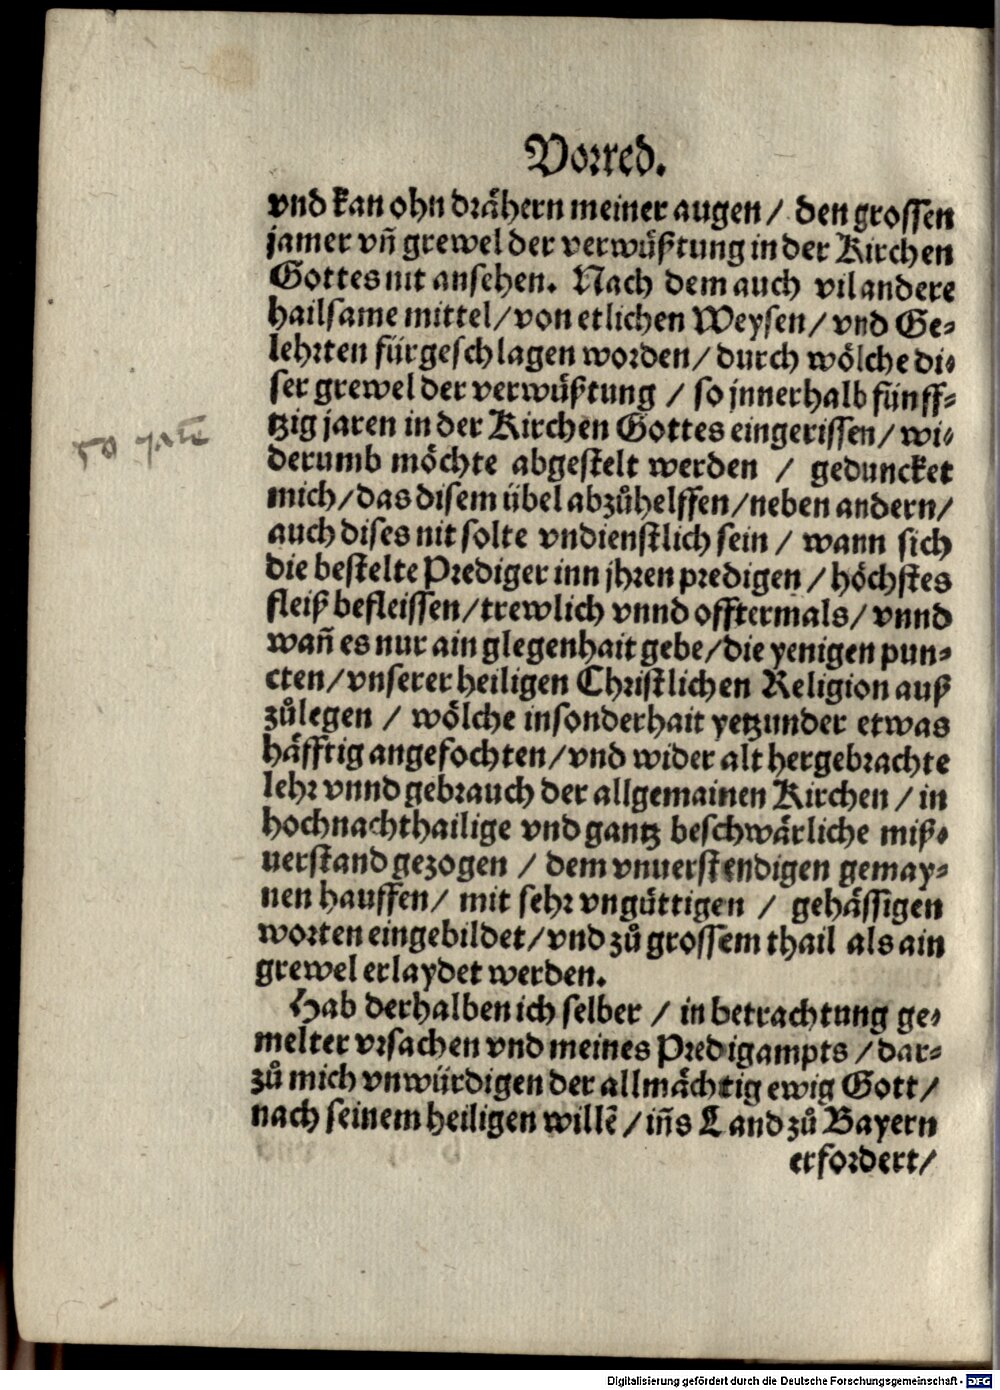 Vorred.
vnd kan ohn drähern meiner augen / den grossen
jamer vñ grewel der verwüßtung in der Kirchen
Gottes nit ansehen. Nach dem auch vil andere
hailsame mittel / von etlichen Weysen / vnd Ge⸗
lehrten fürgeschlagen worden / durch wölche di⸗
ser grewel der verwüßtung / so jnnerhalb fünff⸗
tzig jaren in der Kirchen Gottes eingerissen / wi⸗
derumb möchte abgestelt werden / geduncket
mich / das disem übel abzůhelffen / neben andern /
auch dises nit solte vndienstlich sein / wann sich
die bestelte Prediger inn jhren predigen / höchstes
fleiß befleissen / trewlich vnnd offtermals / vnnd
wañ es nur ain glegenhait gebe / die yenigen pun⸗
cten / vnserer heiligen Christlichen Religion auß
zůlegen / wölche insonderhait yetzunder etwas
häfftig angefochten / vnd wider alt hergebrachte
lehr vnnd gebrauch der allgemainen Kirchen / in
hochnachthailige vnd gantz beschwärliche miß⸗
uerstand gezogen / dem vnuerstendigen gemay⸗
nen hauffen / mit sehr vngüttigen / gehässigen
worten eingebildet / vnd zů grossem thail als ain
grewel erlaydet werden.
Hab derhalben ich selber / in betrachtung ge⸗
melter vrsachen vnd meines Predigampts / dar⸗
zů mich vnwürdigen der allmächtig ewig Gott /
nach seinem heiligen willẽ / iñs Land zů Bayern
erfordert /
50 Jare
Digitalisierung gefördert durch die Deutsche Forschungsgemeinschaft - DFG